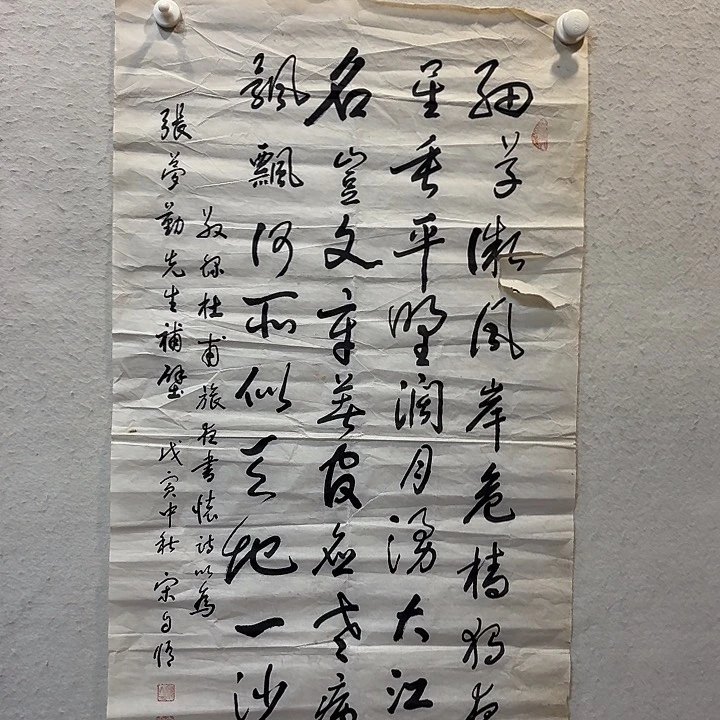 細草微風岸危檣獨夜
星垂平野闊月湧大江
名豈文章著官應老病
飄飄何所似天地一沙
敬錄杜甫旅夜書懷詩以為
張夢勤先生補壁 戊寅中秋 宋自